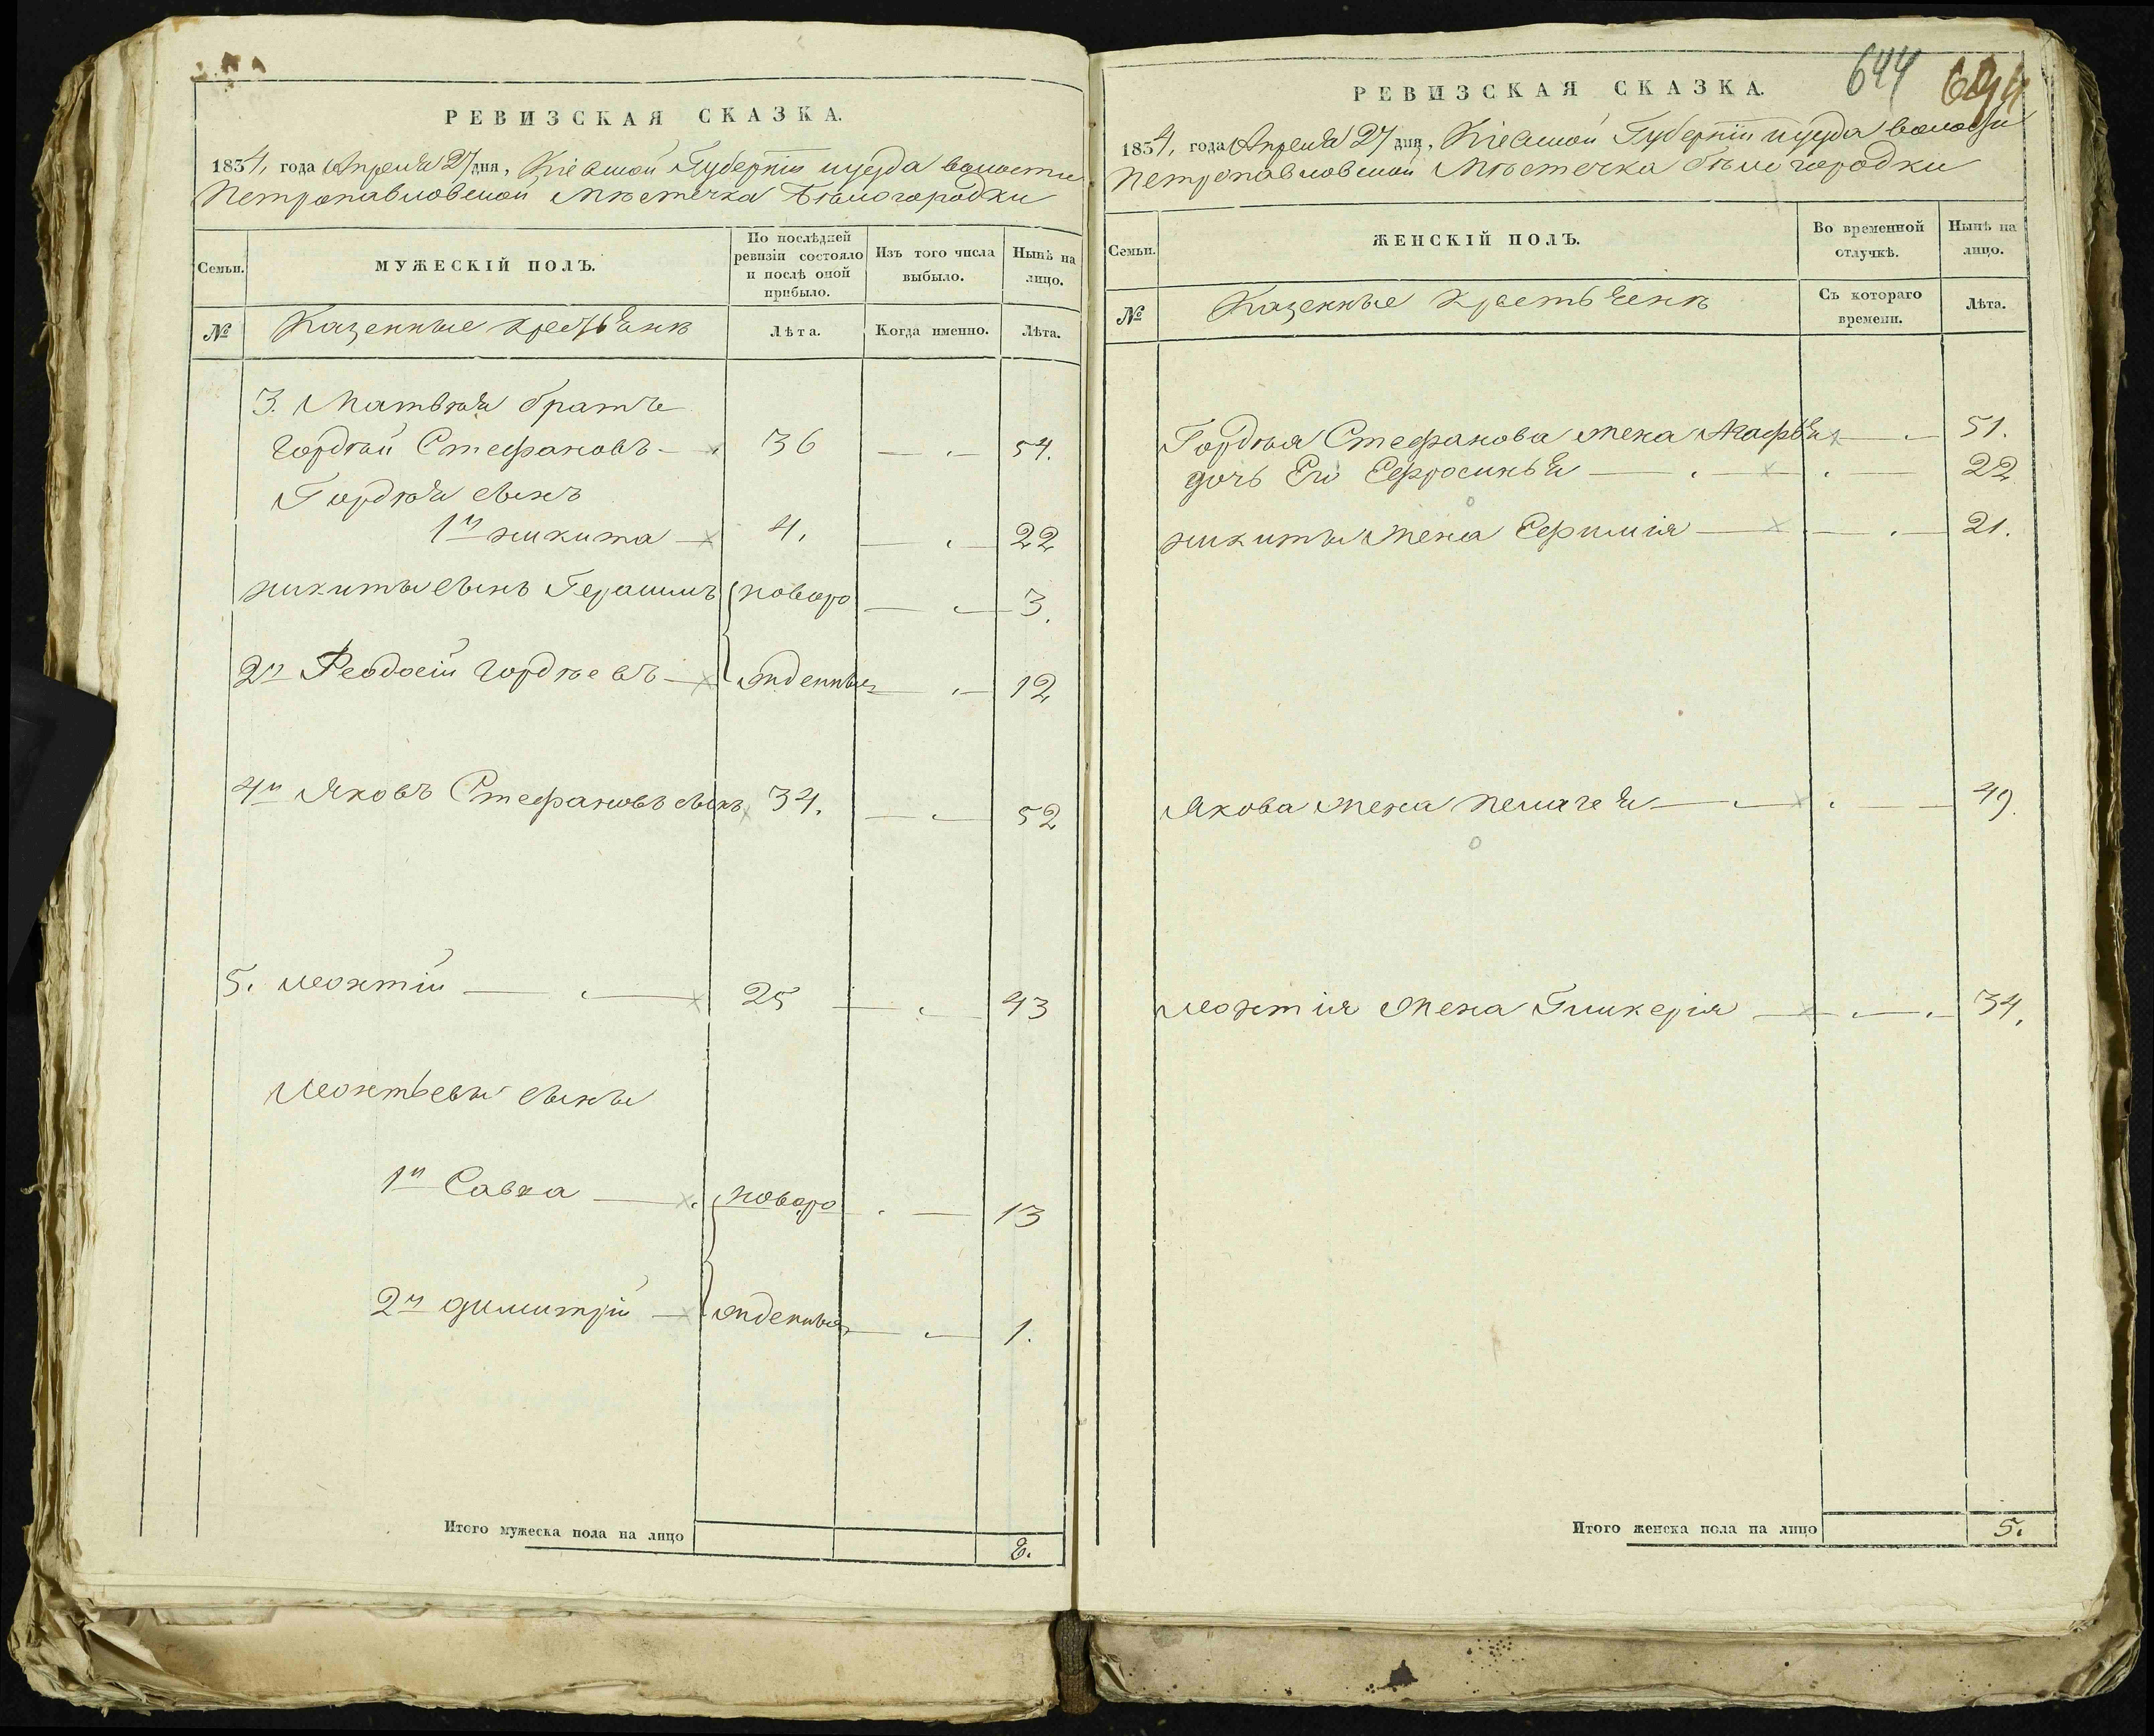 РЕВИЗСКАЯ СКАЗКА.
1834, года Апреля 27 дня, Кіевской Губерніи и уезда волости
Петропавловской Мѣстечка Бѣлогородки
Семьи.
МУЖЕСКІЙ ПОЛЪ.
По послѣдней ревизіи состояло и послѣ оной прибыло.
Изъ того числа выбыло.
Нынѣ на лицо.
№
Казенные крестьянѣ
Лѣта.
Когда именно.
Лѣта.
3. Матвѣя братъ
Гордѣй Стефановъ — 36 — 54.
Гордѣя сынъ
1й Никита — 4. — 22
Никиты сынъ Герасимъ новоро — 3.
2й Феодосій Гордѣевъ — жденные — 12
4й Яковъ Стефановъ сынъ 34. — 52
5. Леонтій — 25 — 43
Леонтьевы сыны
1й Савка — новоро — 13
2й Димитрій — жденные — 1.
Итого мужеска пола на лицо 8.
644
РЕВИЗСКАЯ СКАЗКА.
1834, года Апреля 27 дня, Кіевской Губерніи и уезда волости
Петропавловской Мѣстечка Бѣлогородки
Семьи.
ЖЕНСКІЙ ПОЛЪ.
Во временной отлучкѣ.
Нынѣ на лицо.
№
Казенные крестьянѣ
Съ котораго времени.
Лѣта.
Гордѣя Стефанова жена Агафья — 51.
дочь Его Ефросинья — 22
Никиты жена Ефимія — 21.
Якова жена Пелагея — 49.
Леонтія жена Гликерія — 34.
Итого женска пола на лицо 5.